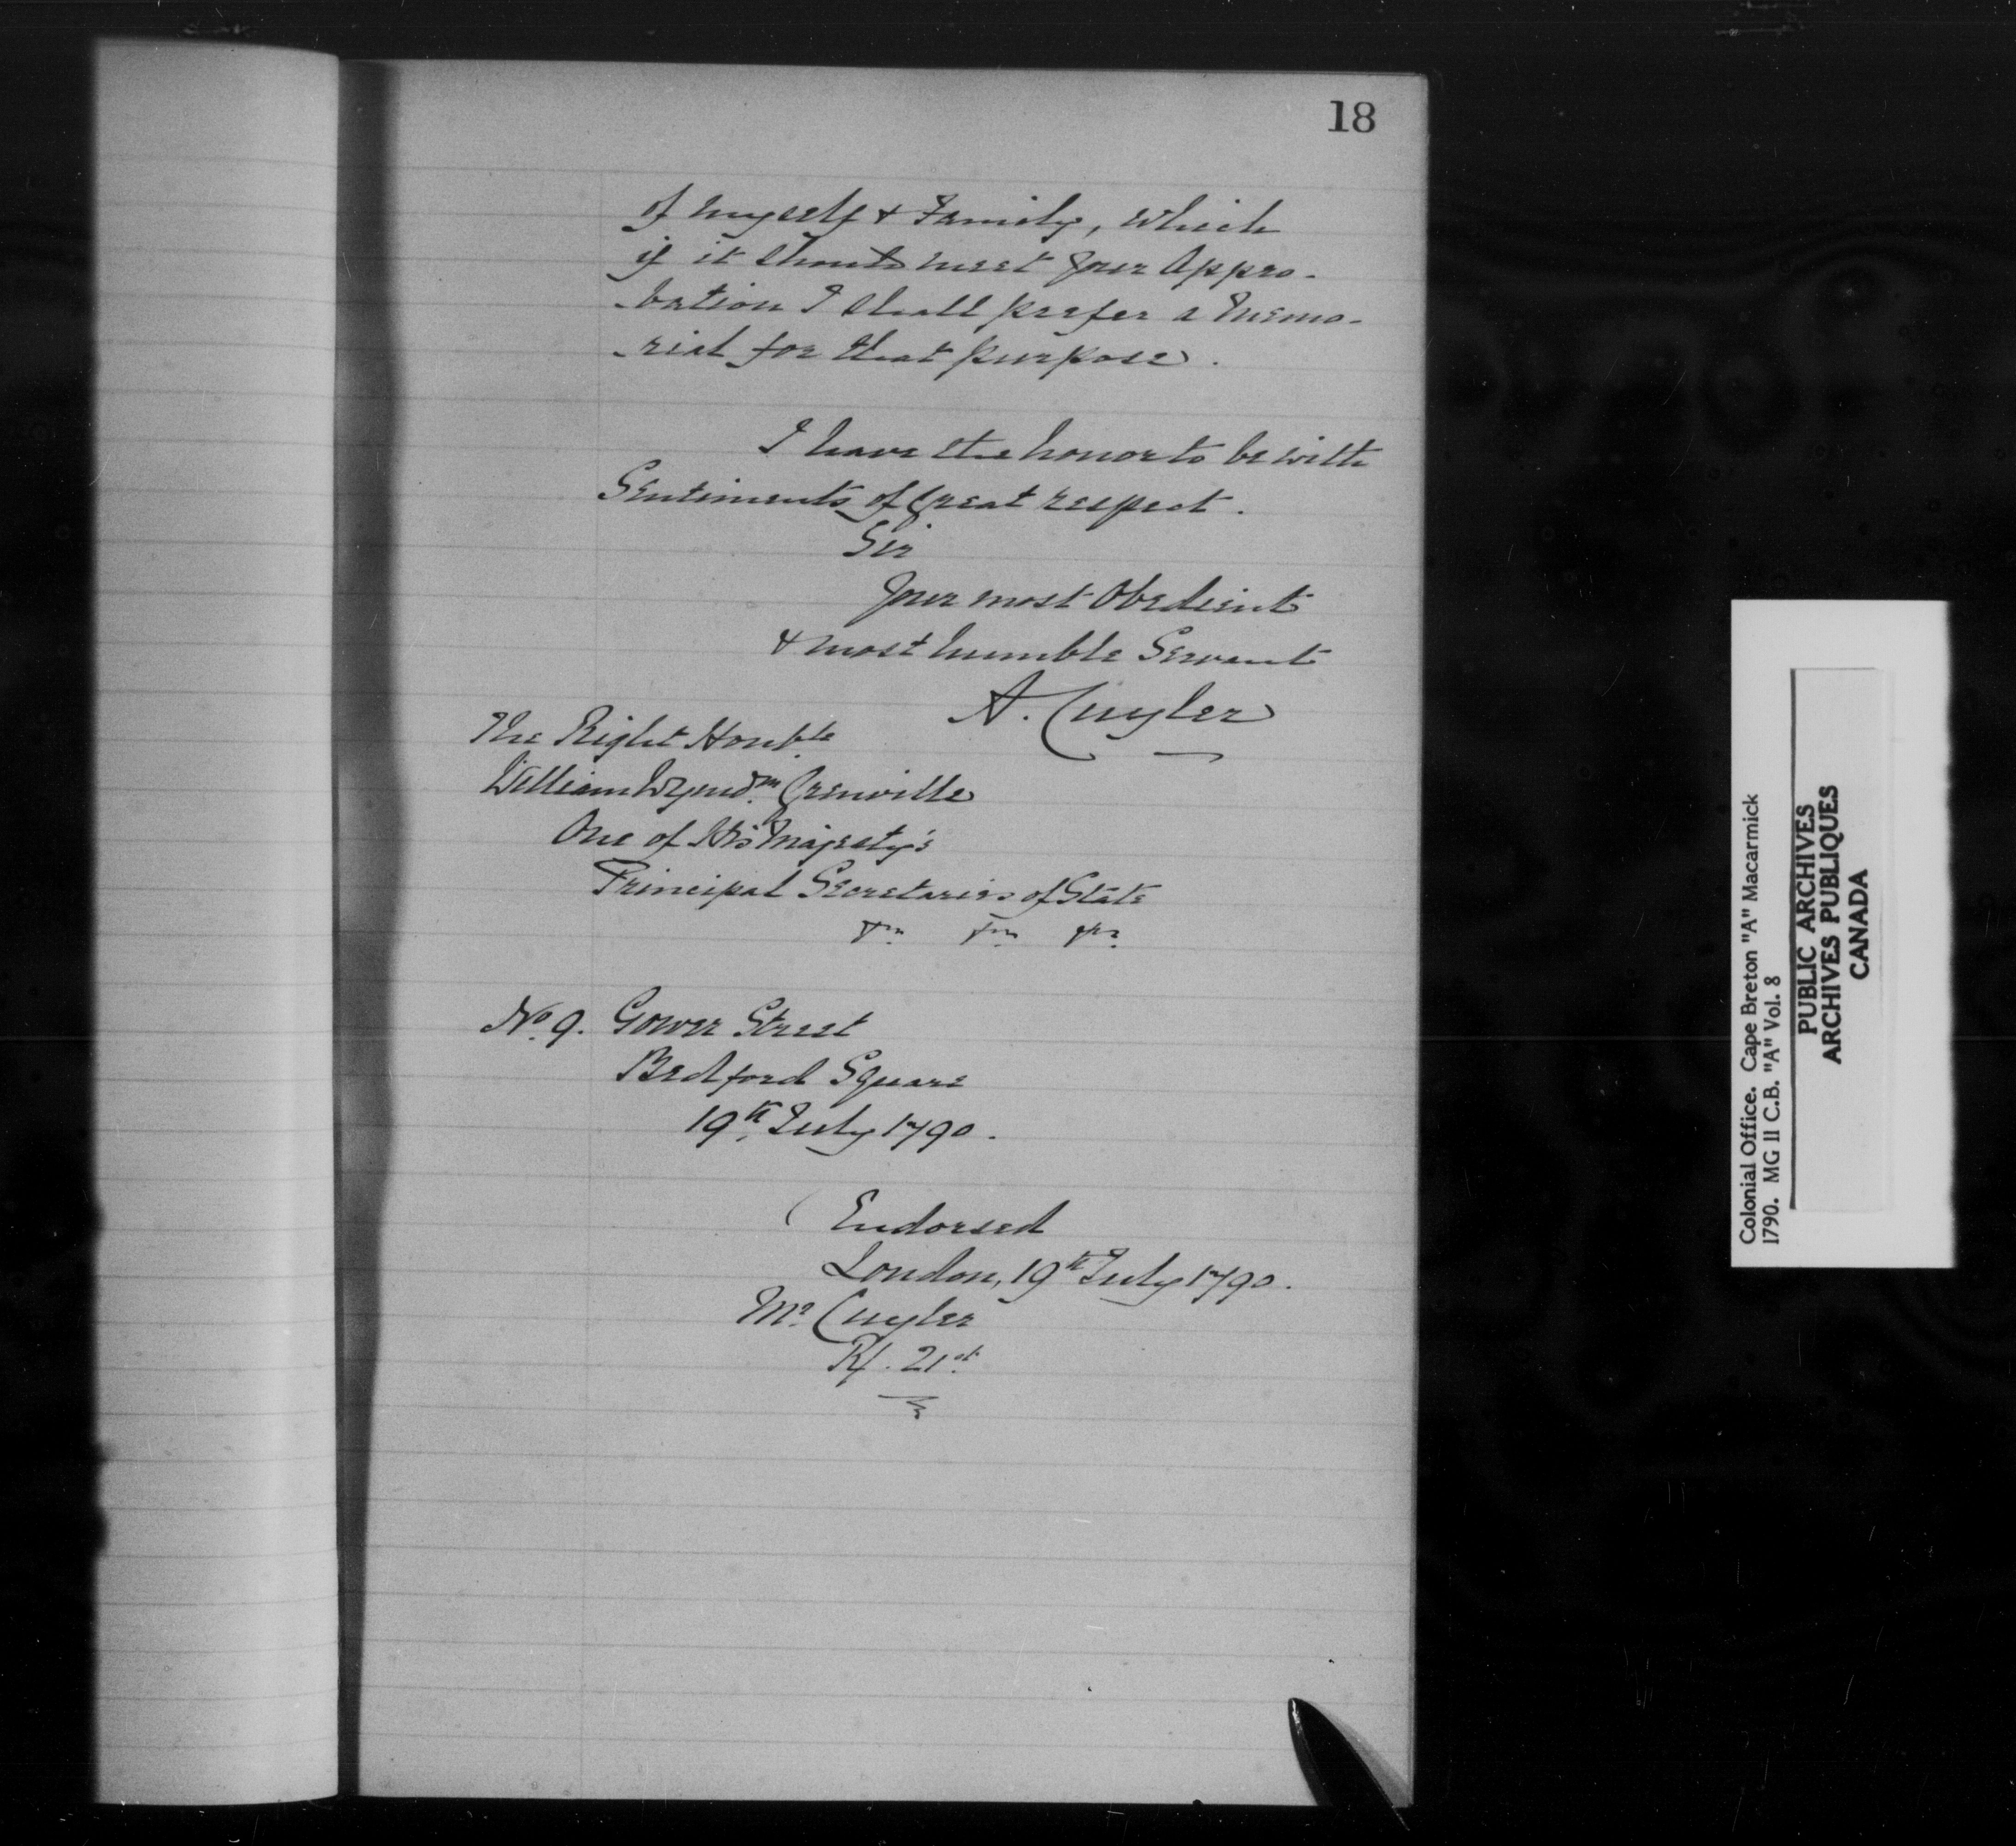 18
of myself & Family, which
if it should meet your Appro-
-bation I shall prefer a Memo-
-rial for that purpose.
I have the honor to be with
Sentiments of Great respect.
Sir
Your most Obedient
& most humble Servant
A. Cuyler
The Right Honble
William Wyndm Grenville
One of His Majesty's
Principal Secretaries of State
No. 9. Gower Street
Bedford Square
19th July 1790.
( Endorsed
London, 19th July 1790.
Mr Cuyler
21st
Colonial Office. Cape Breton "A" Macarmick
1790. MG 11 C.B. "A" Vol. 8
PUBLIC ARCHIVES
ARCHIVES PUBLIQUES
CANADA